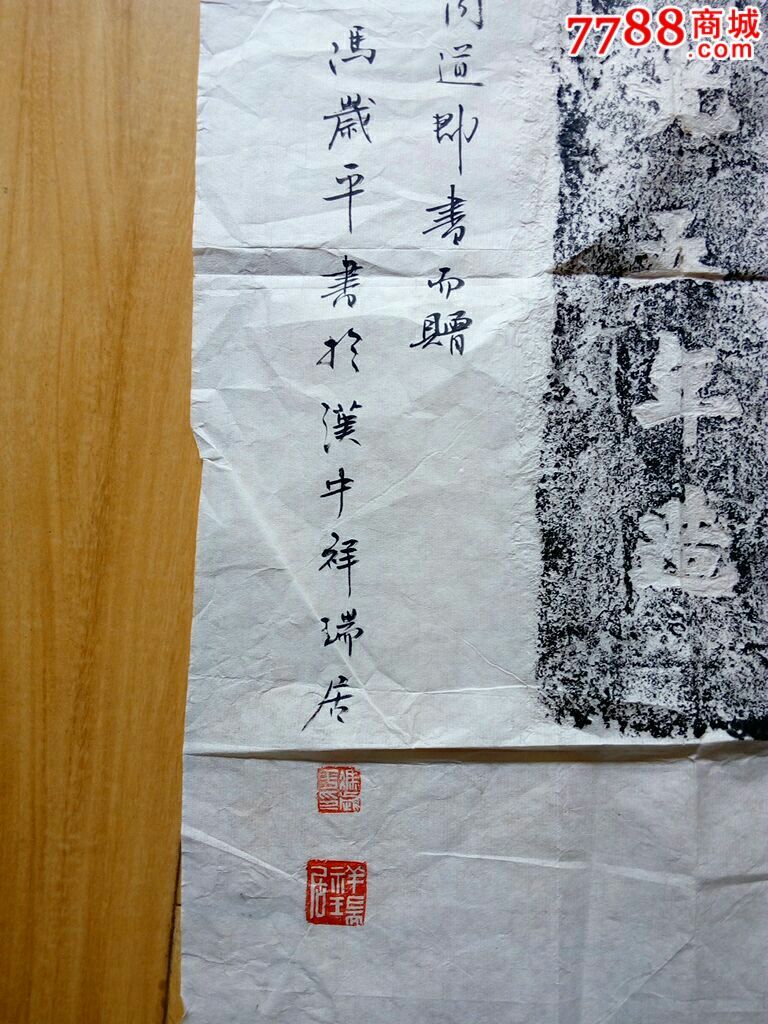 7788商城
.com
同道即書而贈
馮歲平書於漢中祥瑞居
壬午